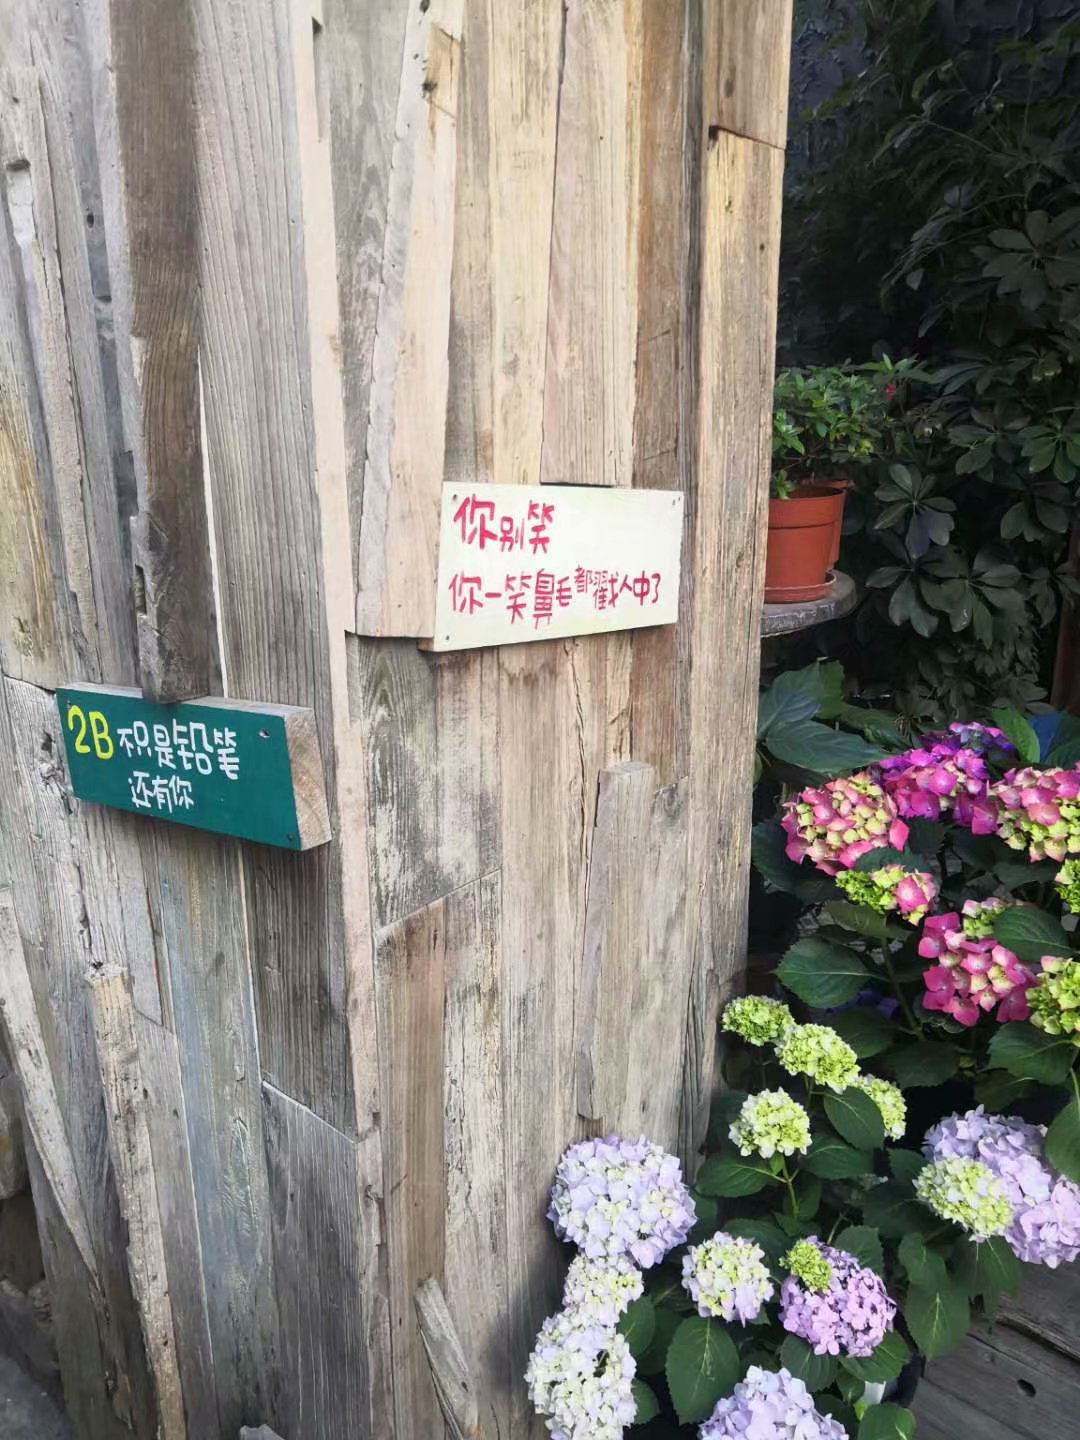 你别笑
你一笑鼻毛都戳人中了
2B不只是铅笔
还有你